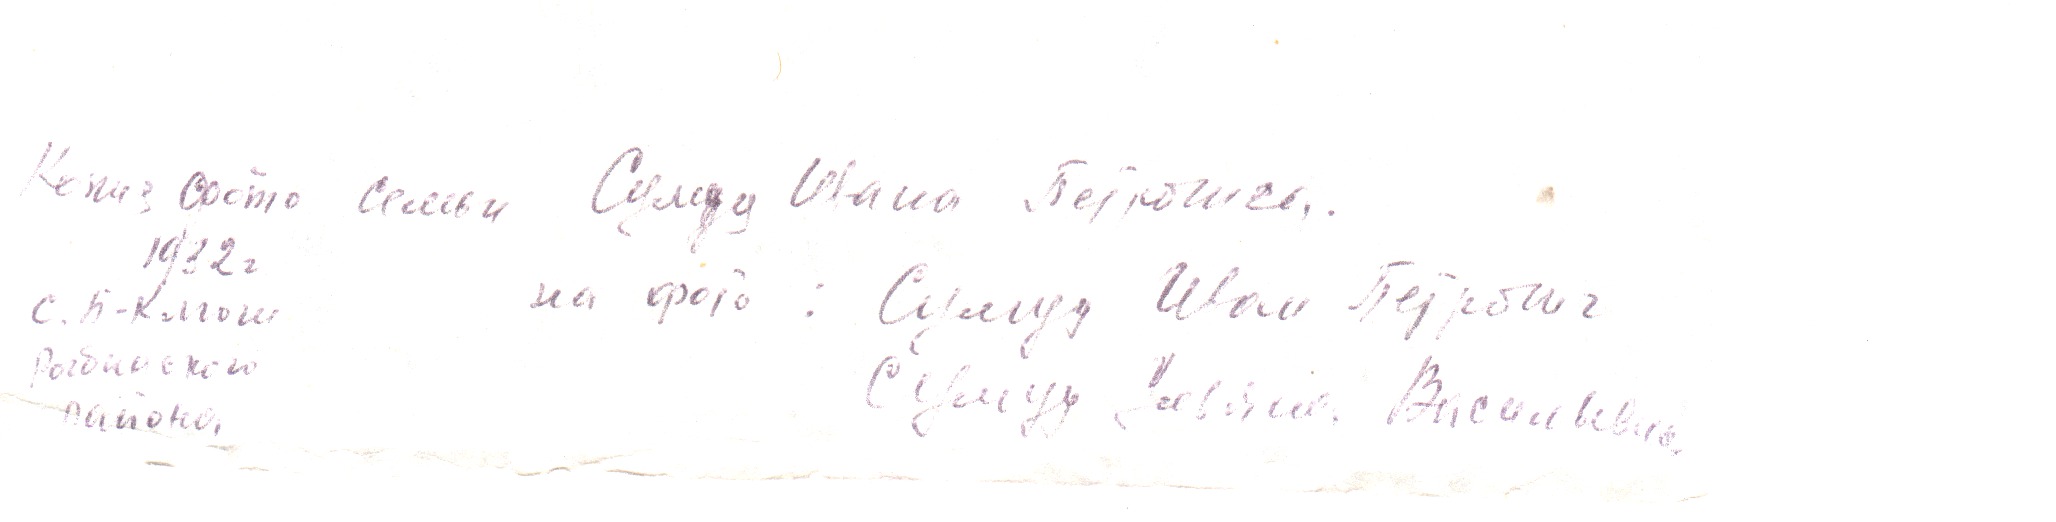 Копия фото семьи Сулиду Ивана Петровича.
1932 г
с. Б-Ключи
Рыбинского
района
на фото: Сулиду Иван Петрович
Сулиду Васильевна